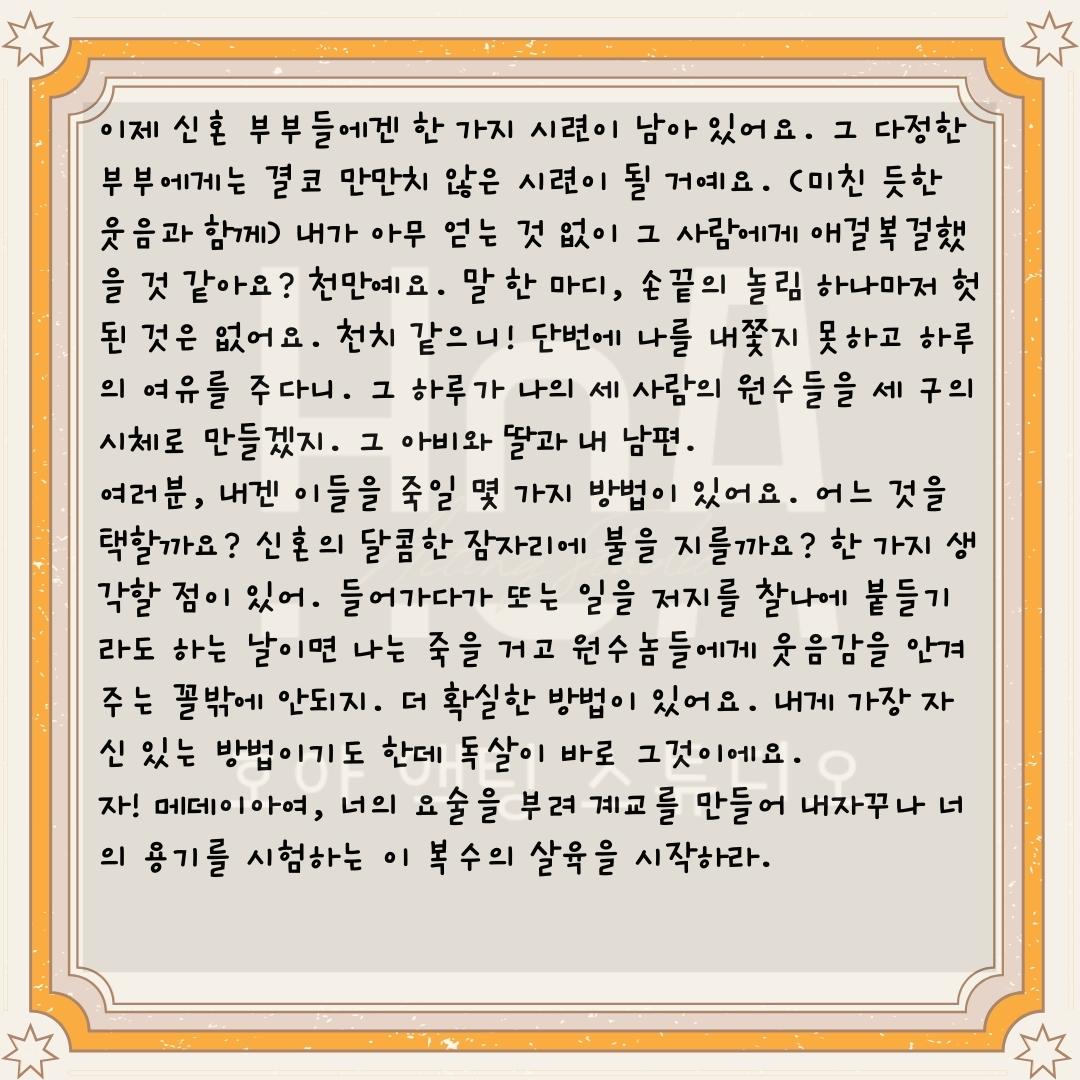 이제 신혼 부부들에겐 한 가지 시련이 남아 있어요. 그 다정한
부부에게는 결코 만만치 않은 시련이 될 거예요. (미친 듯한
웃음과 함께) 내가 아무 얻는 것 없이 그 사람에게 애걸복걸했
을 것 같아요? 천만예요. 말 한 마디, 손끝의 놀림 하나마저 헛
된 것은 없어요. 천치 같으니! 단번에 나를 내쫓지 못하고 하루
의 여유를 주다니. 그 하루가 나의 세 사람의 원수들을 세 구의
시체로 만들겠지. 그 아비와 딸과 내 남편.
여러분, 내겐 이들을 죽일 몇 가지 방법이 있어요. 어느 것을
택할까요? 신혼의 달콤한 잠자리에 불을 지를까요? 한 가지 생
각할 점이 있어. 들어가다가 또는 일을 저지를 찰나에 붙들기
라도 하는 날이면 나는 죽을 거고 원수놈들에게 웃음감을 안겨
주는 꼴밖에 안되지. 더 확실한 방법이 있어요. 내게 가장 자
신 있는 방법이기도 한데 독살이 바로 그것이에요.
자! 메데이아여, 너의 요술을 부려 계교를 만들어 내자꾸나 너
의 용기를 시험하는 이 복수의 살육을 시작하라.
HoA
Acting Studio
호아 액팅 스튜디오